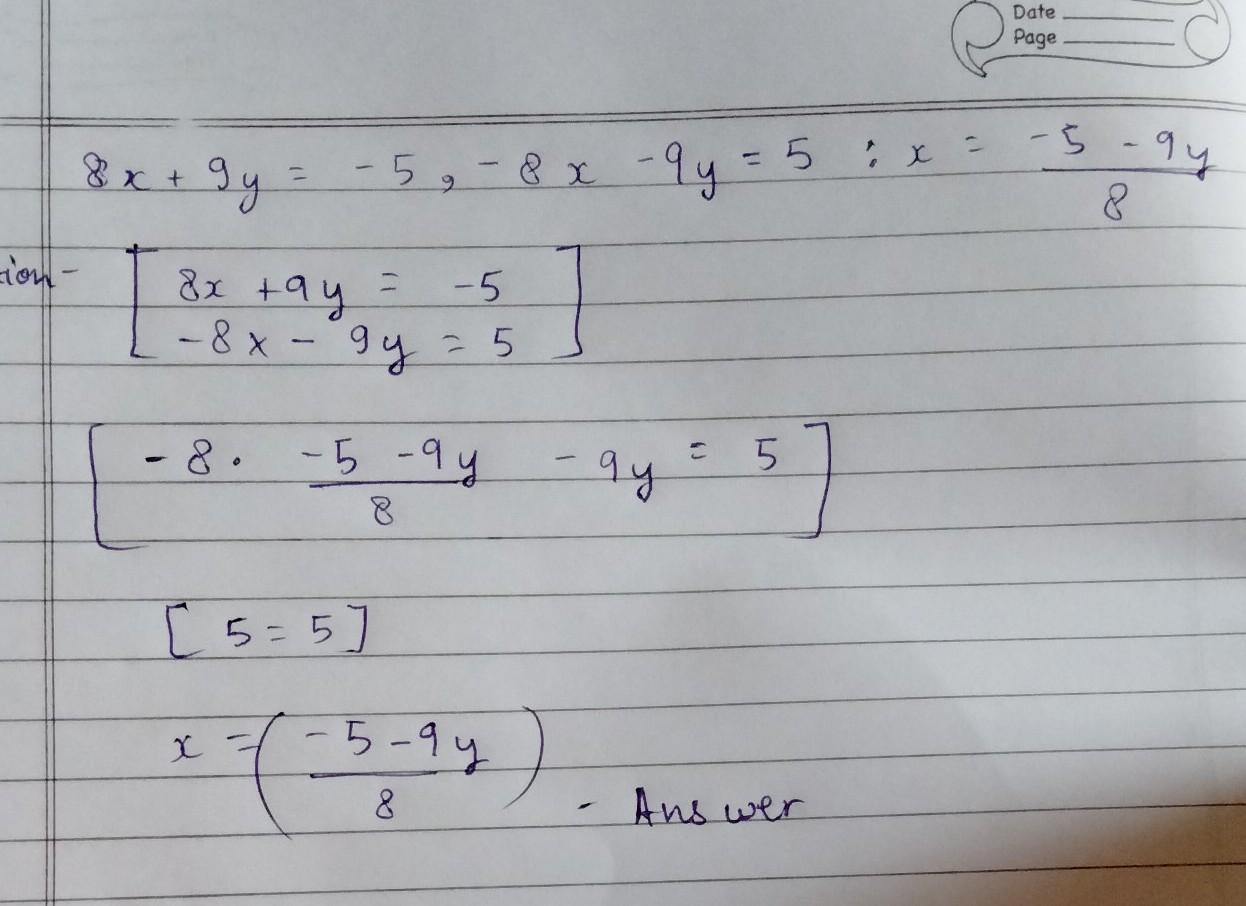 Date
Page
8x + 9y = -5, -8x -9y = 5 : x = \frac{-5 - 9y}{8}
tion- [ 8x + 9y = -5
-8x - 9y = 5 ]
[ -8 . \frac{-5 - 9y}{8} - 9y = 5 ]
[ 5 = 5 ]
x = ( \frac{-5 - 9y}{8} )
- Answer